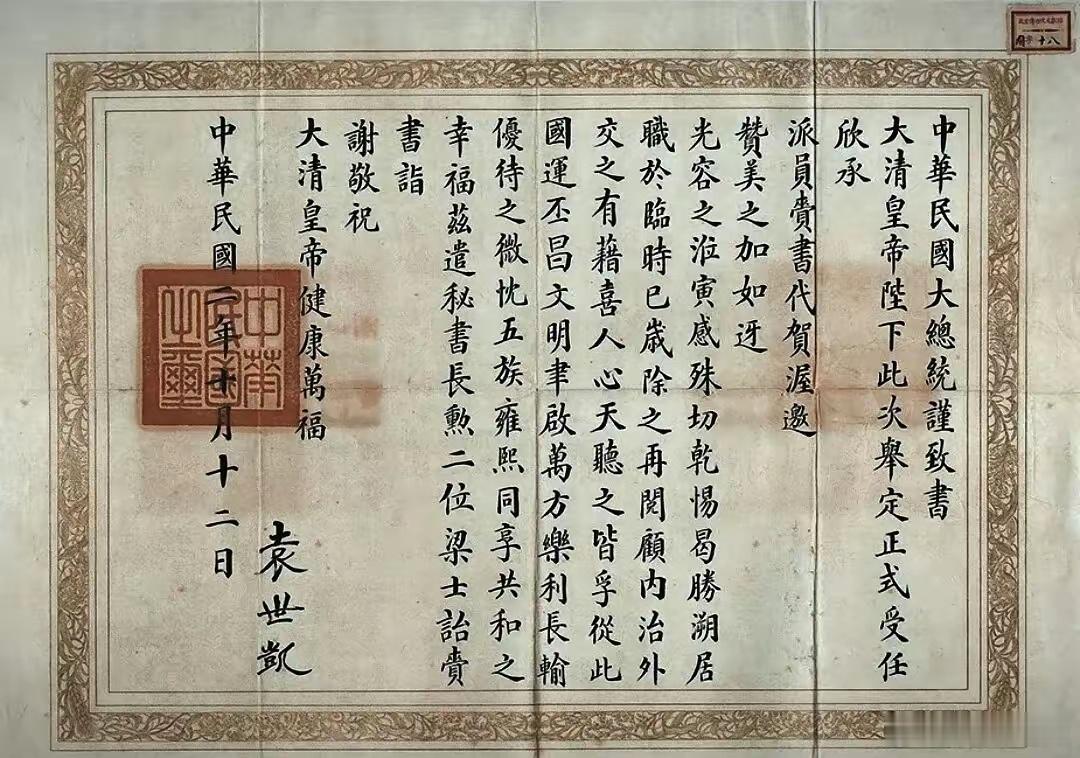 中華民國大總統謹致書
大清皇帝陛下此次舉定正式受任
欣承
派員賫書代賀渥邀
贊美之加如迓
光容之涖寅感殊切乾惕曷勝溯居
職於臨時已歲除之再閱顧内治外
交之有藉喜人心天聽之皆孚從此
國運丕昌文明聿啟萬方樂利長輸
優待之微忱五族雍熙同享共和之
幸福茲遣秘書長勲二位梁士詒賫
書詣
謝敬祝
大清皇帝健康萬福
中華民國二年十月十二日
袁世凱
中華民國之璽
八十